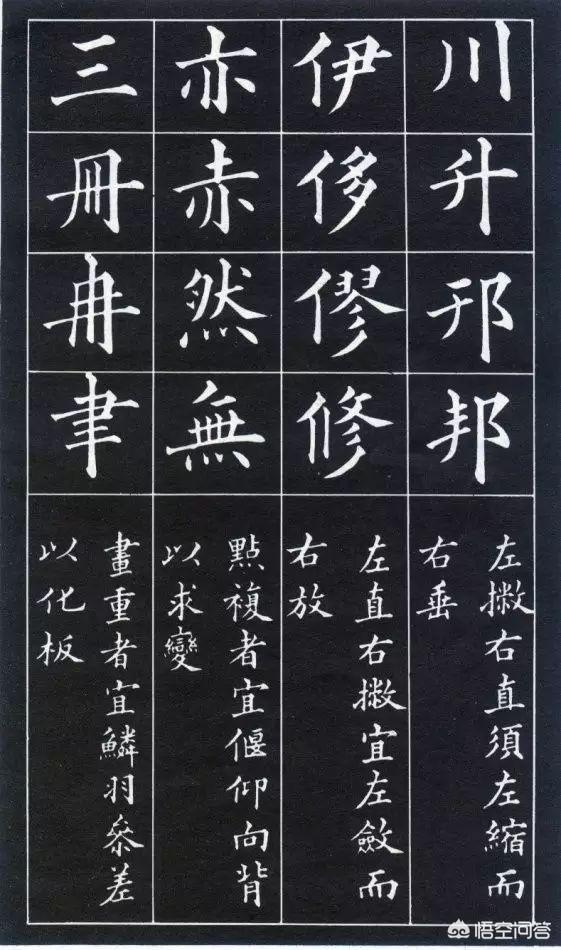 川
升
邦
左撇右直須左縮而
右垂
伊
侈
僇
修
左直右撇宜左斂而
右放
亦
赤
然
無
點複者宜偃仰向背
以求變
三
冊
冉
聿
畫重者宜鱗羽參差
以化板
悟空问答